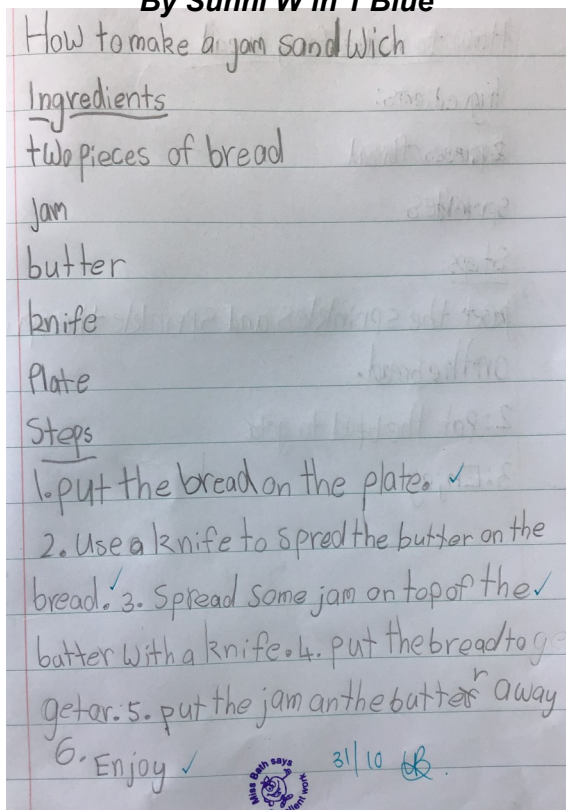 By Sunni W in 1 Blue
How to make a jam sandwich
Ingredients
two pieces of bread
jam
butter
knife
Plate
Steps
1. put the bread on the plate. ✓
2. Use a knife to spred the butter on the
bread. ✓ 3. Spread some jam on top of the ✓
batter with a knife. 4. put the bread to ge
getar. 5. put the jam an the butter away
6. Enjoy ✓
Miss Beth says
31/10